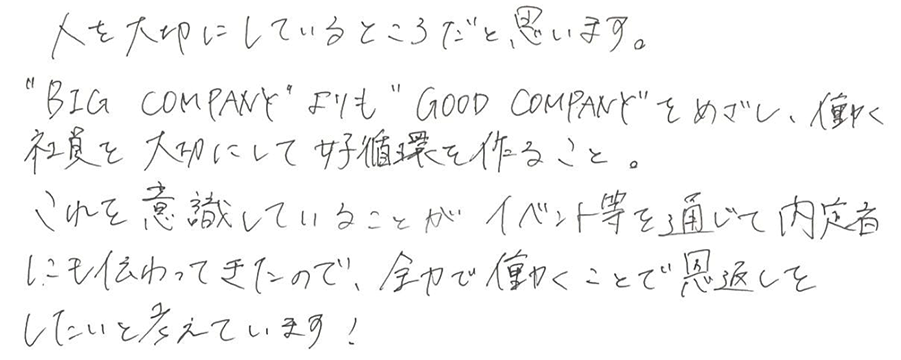 人を大切にしているところだと思います。
"BIG COMPANY"よりも"GOOD COMPANY"をめざし、働く
社員を大切にして好循環を作ること。
これを意識していることがイベント等を通じて内定者
にも伝わってきたので、全力で働くことで恩返しを
したいと考えています！